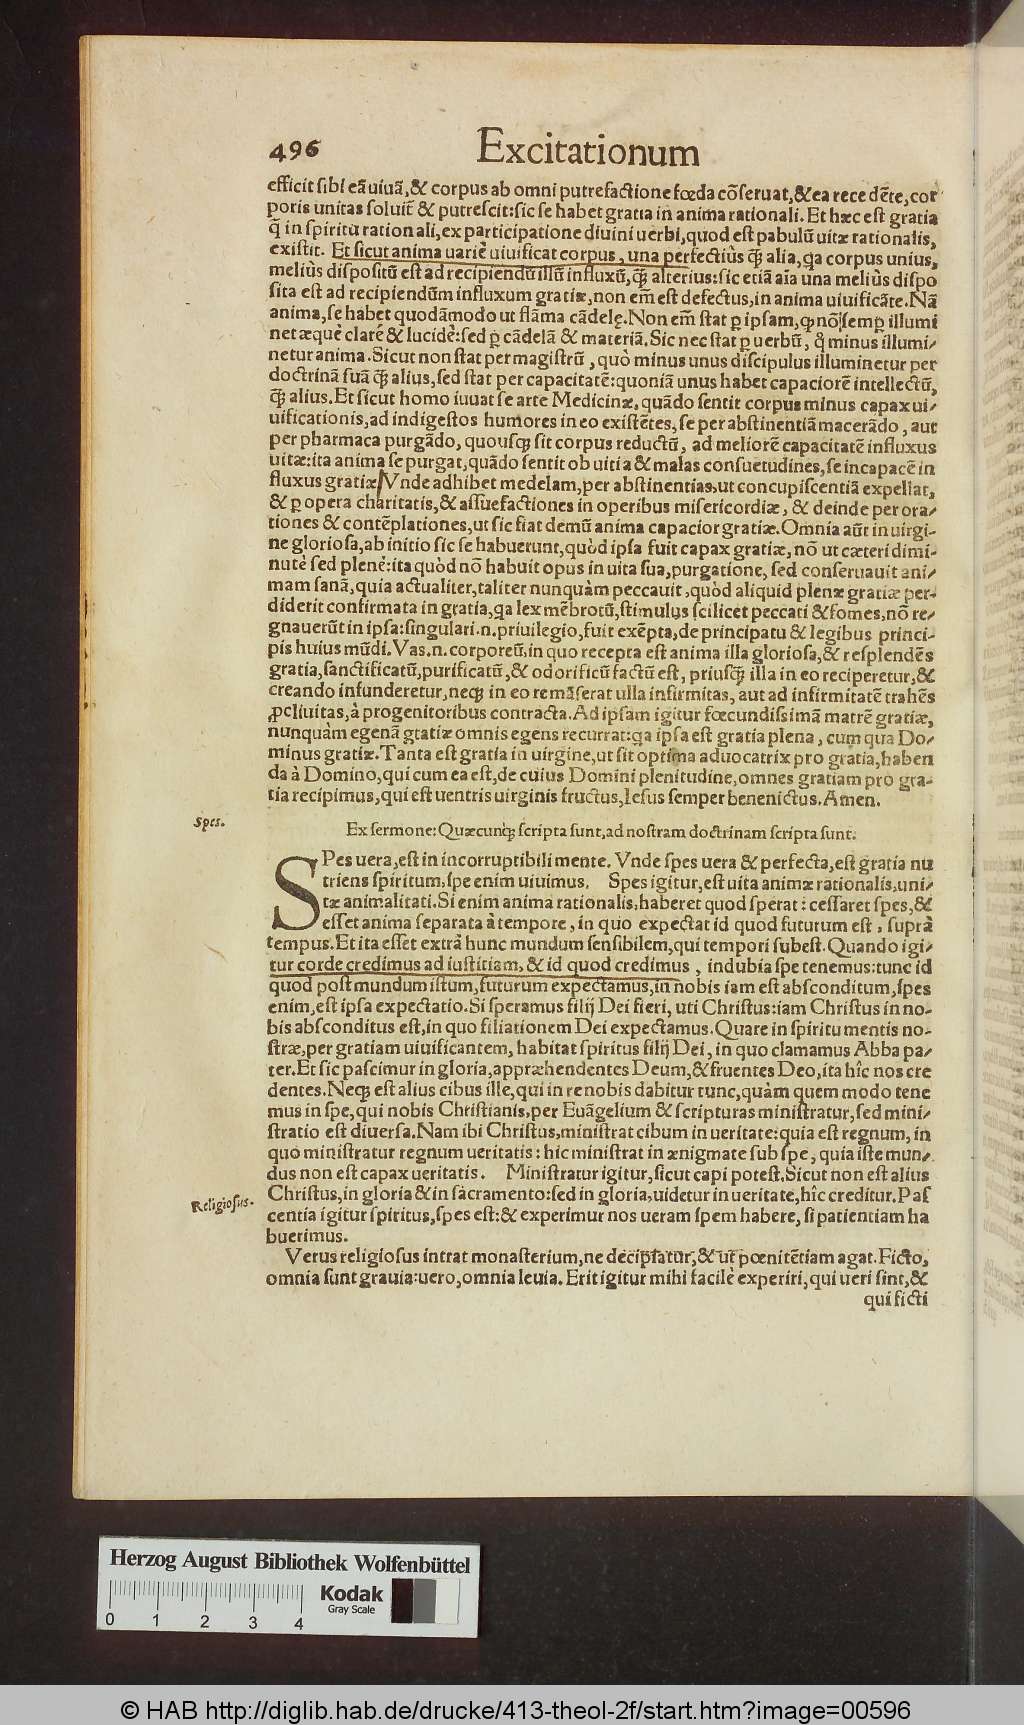 496 Excitationum
efficit sibi eã uiuã, & corpus ab omni putrefactione fœda cõseruat, & ea recedẽte, cor
poris unitas soluit̃ & putrescit: sic se habet gratia in anima rationali. Et hæc est gratia
q̃ in spiritu rationali, ex participatione diuini uerbi, quod est pabulũ uitæ rationalis,
existit. Et sicut anima uariè uiuificat corpus, una perfectiùs q̃ꝫ alia, qa corpus unius,
meliùs dispositũ est ad recipiendũ illũ influxũ, q̃ꝫ alterius: sic etiã aĩa una meliùs dispo
sita est ad recipiendũm influxum gratiæ, non em̃ est defectus, in anima uiuificãte. Nã
anima, se habet quodãmodo ut flãma cãdelę. Non em̃ stat ꝑ ipsam, qꝫ nõ semꝑ illumi
net æquè clarè & lucidè: sed ꝑ cãdelã & materiã. Sic nec stat ꝑ uerbũ, q̃ minus illumi⸗
netur anima. Sicut non stat per magistrũ, quò minus unus discipulus illuminetur per
doctrinã suã q̃ꝫ alius, sed stat per capacitatẽ: quoniã unus habet capaciorẽ intellectũ,
q̃ꝫ alius. Et sicut homo iuuat se arte Medicinæ, quãdo sentit corpus minus capax ui⸗
uificationis, ad indigestos humores in eo existẽtes, se per abstinentiã macerãdo, aut
per pharmaca purgãdo, quousqꝫ sit corpus reductũ, ad meliorẽ capacitatẽ influxus
uitæ: ita anima se purgat, quãdo sentit ob uitia & malas consuetudines, se incapacẽ in
fluxus gratiæ. Vnde adhibet medelam, per abstinentias, ut concupiscentiã expellat,
& ꝑ opera charitatis, & assuefactiones in operibus misericordiæ, & deinde per ora⸗
tiones & contẽplationes, ut sic fiat demũ anima capacior gratiæ. Omnia aũt in uirgi⸗
ne gloriosa, ab initio sic se habuerunt, quòd ipsa fuit capax gratiæ, nõ ut cæteri dimi⸗
nutè sed plenè: ita quòd nõ habuit opus in uita sua, purgatione, sed conseruauit ani⸗
mam sanã, quia actualiter, taliter nunquàm peccauit, quòd aliquid plenæ gratiæ per⸗
diderit confirmata in gratia, qa lex mẽbrorũ, stimulus scilicet peccati & fomes, nõ re⸗
gnauerũt in ipsa: singulari .n. priuilegio, fuit exẽpta, de principatu & legibus princi⸗
pis huius mũdi. Vas .n. corporeũ, in quo recepta est anima illa gloriosa, & resplendẽs
gratia, sanctificatũ, purificatũ, & odorificũ factũ est, priusq̃ꝫ illa in eo reciperetur, &
creando infunderetur, neqꝫ in eo remãserat ulla infirmitas, aut ad infirmitatẽ trahẽs
ꝓcliuitas, à progenitoribus contracta. Ad ipsam igitur fœcundissimã matrẽ gratiæ,
nunquàm egenã gratiæ omnis egens recurrat: qa ipsa est gratia plena, cum qua Do⸗
minus gratiæ. Tanta est gratia in uirgine, ut sit optima aduocatrix pro gratia, haben
da à Domino, qui cum ea est, de cuius Domini plenitudine, omnes gratiam pro gra⸗
tia recipimus, qui est uentris uirginis fructus, Iesus semper benenictus. Amen.
Spes.
Ex sermone: Quæcunqꝫ scripta sunt, ad nostram doctrinam scripta sunt.
SPes uera, est in incorruptibili mente. Vnde spes uera & perfecta, est gratia nu
triens spiritum, spe enim uiuimus. Spes igitur, est uita animæ rationalis, uni⸗
tæ animalitati. Si enim anima rationalis, haberet quod sperat: cessaret spes, &
esset anima separata à tempore, in quo expectat id quod futurum est, suprà
tempus. Et ita esset extrà hunc mundum sensibilem, qui tempori subest. Quando igi⸗
tur corde credimus ad iustitiam, & id quod credimus, indubia spe tenemus: tunc id
quod post mundum istum, futurum expectamus, in nobis iam est absconditum, spes
enim, est ipsa expectatio. Si speramus filij Dei fieri, uti Christus: iam Christus in no⸗
bis absconditus est, in quo filiationem Dei expectamus. Quare in spiritu mentis no⸗
stræ, per gratiam uiuificantem, habitat spiritus filij Dei, in quo clamamus Abba pa⸗
ter. Et sic pascimur in gloria, appræhendentes Deum, & fruentes Deo, ita hîc nos cre
dentes. Neqꝫ est alius cibus ille, qui in re nobis dabitur tunc, quàm quem modo tene
mus in spe, qui nobis Christianis, per Euãgelium & scripturas ministratur, sed mini⸗
stratio est diuersa. Nam ibi Christus, ministrat cibum in ueritate: quia est regnum, in
quo ministratur regnum ueritatis: hic ministrat in ænigmate sub spe, quia iste mun⸗
dus non est capax ueritatis. Ministratur igitur, sicut capi potest. Sicut non est alius
Christus, in gloria & in sacramento: sed in gloria, uidetur in ueritate, hîc creditur. Pas
centia igitur spiritus, spes est: & experimur nos ueram spem habere, si patientiam ha
buerimus.
Religiosus.
Verus religiosus intrat monasterium, ne decipiatur, & ut pœnitẽtiam agat. Ficto,
omnia sunt grauia: uero, omnia leuia. Erit igitur mihi facilè experiri, qui ueri sint, &
qui ficti
Herzog August Bibliothek Wolfenbüttel
Kodak
Gray Scale
0 1 2 3 4
© HAB http://diglib.hab.de/drucke/413-theol-2f/start.htm?image=00596